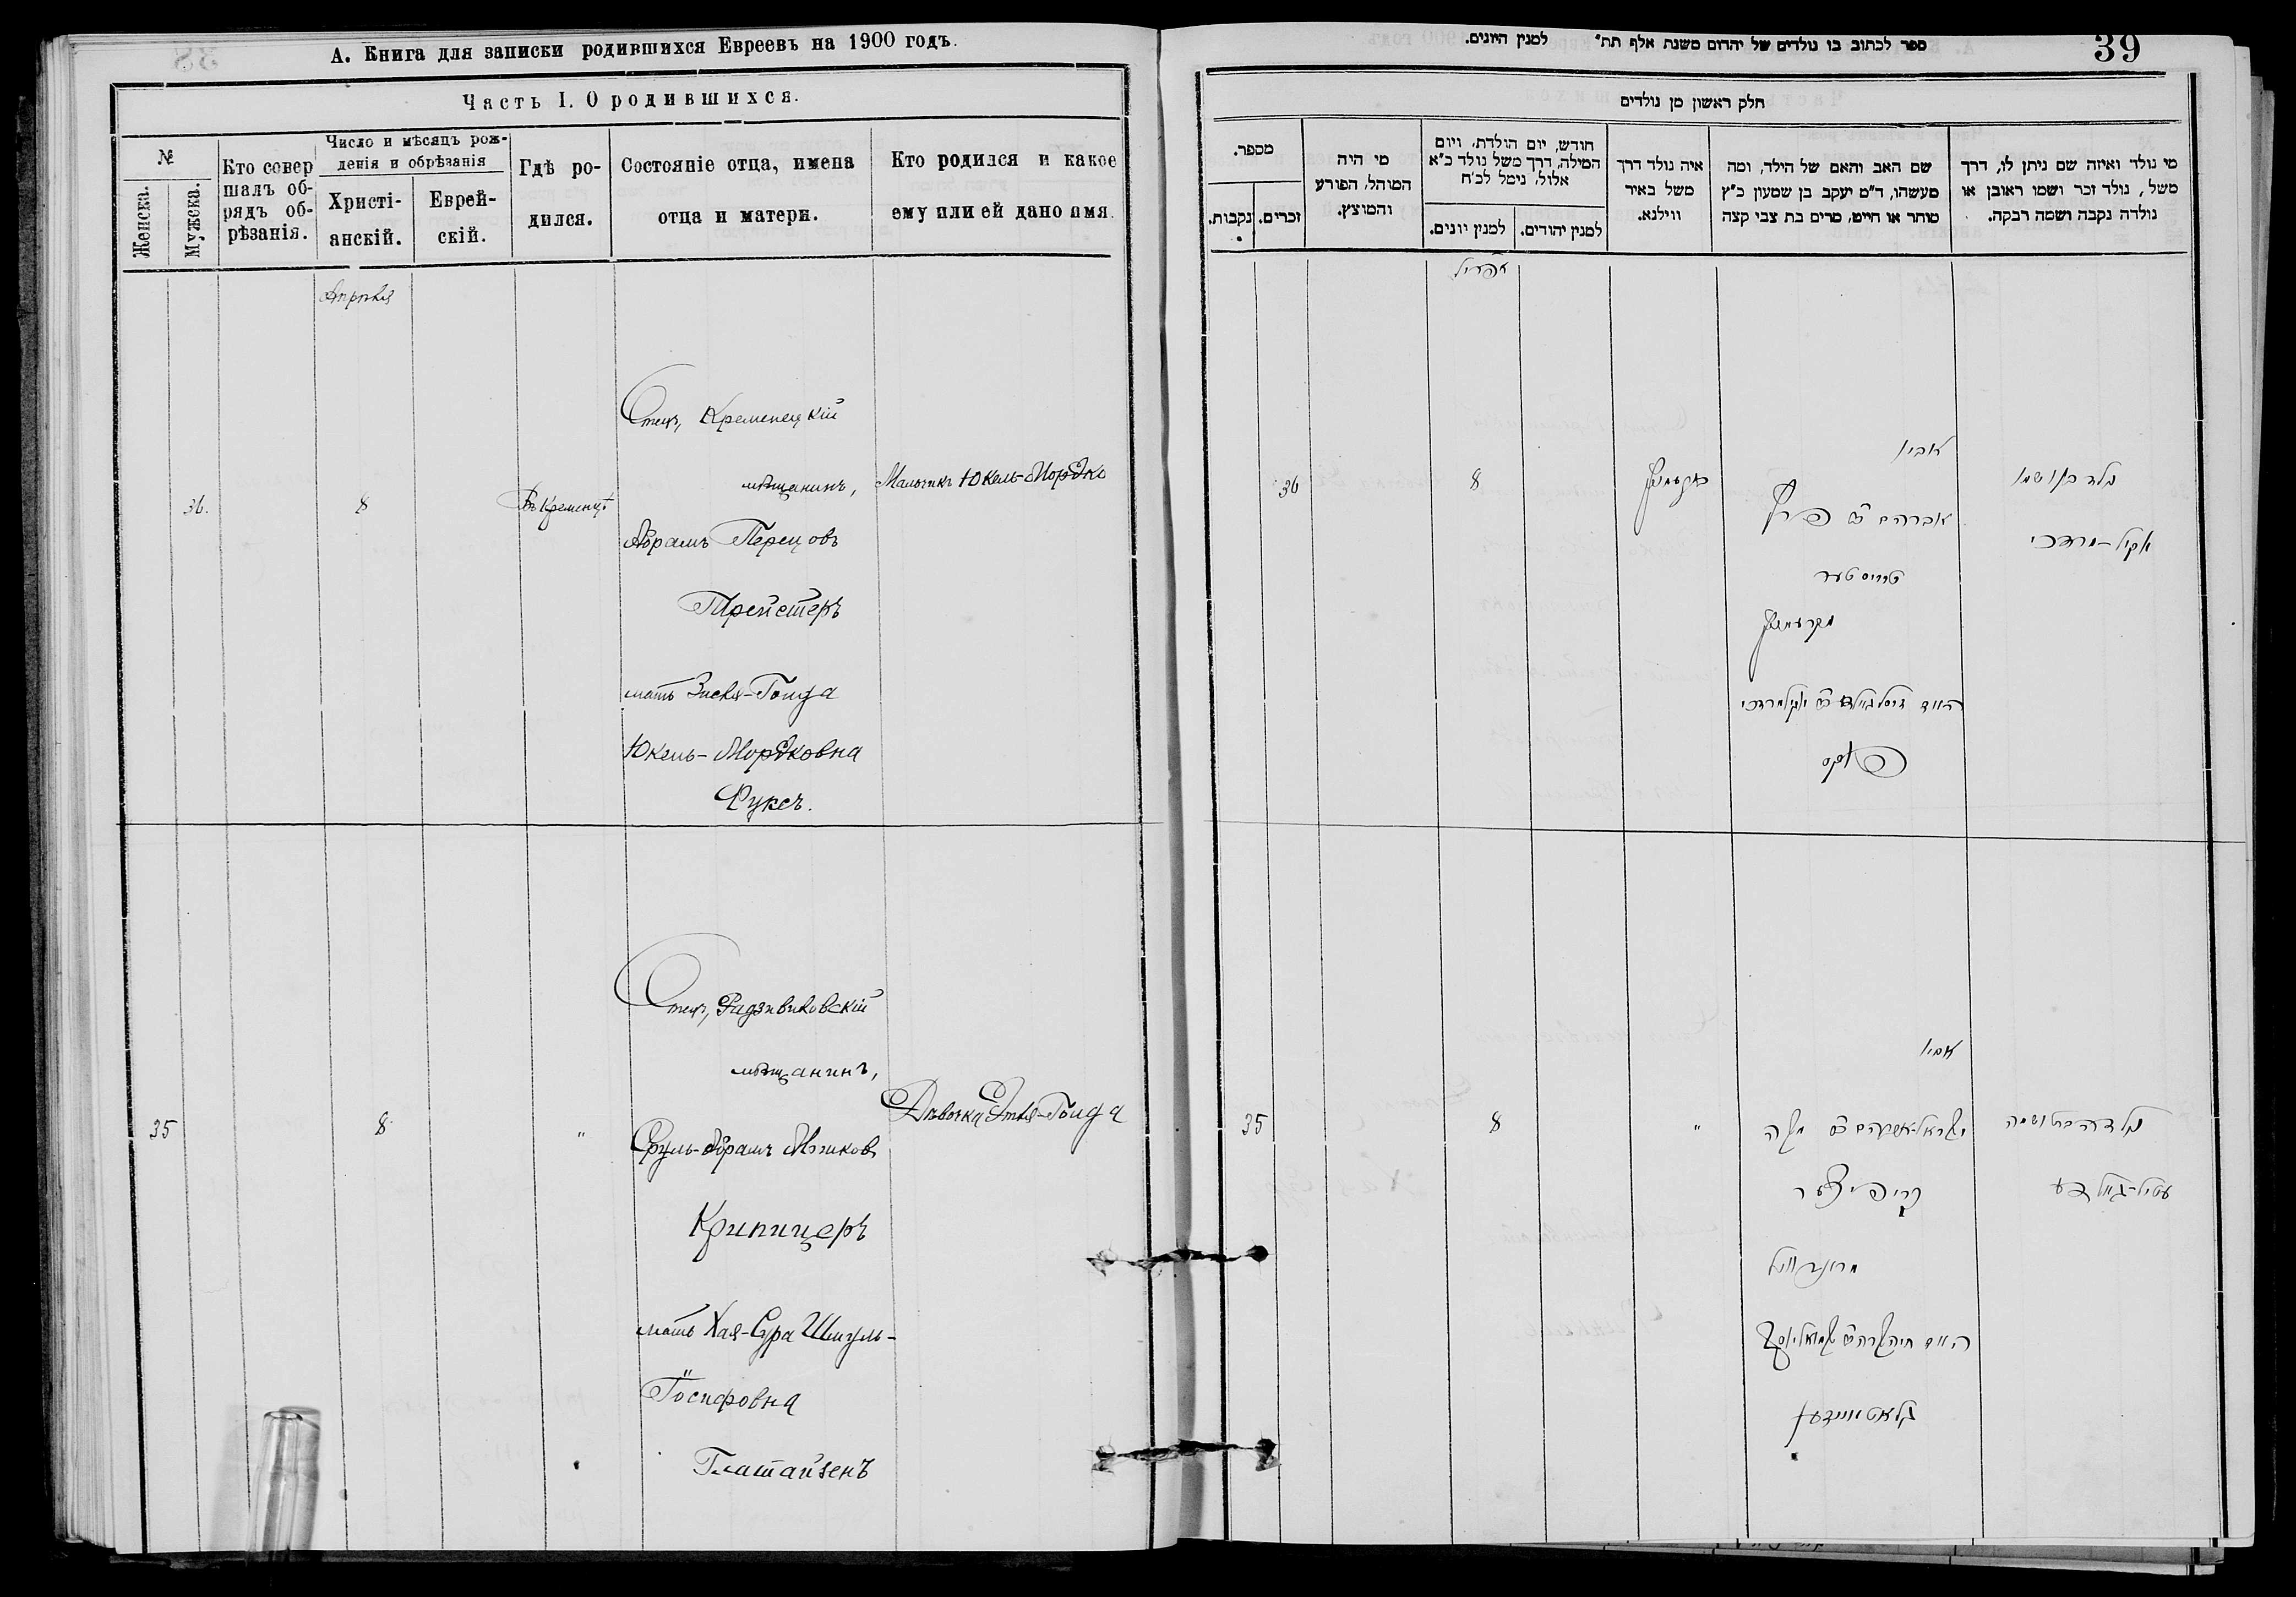 А. Книга для записки родившихся Евреевъ на 1900 годъ.
Часть I. О родившихся.
№
Женска.
Мужска.
Кто совер
шалъ об-
рядъ об-
рѣзанія.
Число и мѣсяцъ рож-
денія и обрѣзанія
Христі-
анскій.
Еврей-
скій.
Гдѣ ро-
дился.
Состояніе отца, имена
отца и матери.
Кто родился и какое
ему или ей дано имя.
Апрѣля
36.
8
Въ Кременцѣ
Отецъ, Кременецкій
мѣщанинъ,
Абрамъ Перецовъ
Трейстеръ
мать Зисля-Гольда
Юкель-Мордковна
Фуксъ.
Мальчикъ Юкель-Мордко
35
8
"
Отецъ, Радзивиловскій
мѣщанинъ,
Сруль-Абрамъ Мошковъ
Крипицеръ
мать Хая-Сура Шмуль-
Іосифовна
Глатайзенъ
Дѣвочка Этля-Гольда
ספר לכתוב בו נולדים של יהדום משנת אלף תת" למנין היונים.
39
חלק ראשון מן נולדים
מספר.
נקבות.
זכרים.
מי היה
המוהל, הפורע
והמוצץ.
חודש, יום הולדת, ויום
המילה, דרך משל נולד כ"א
אלול, נימל לכ'ח
למנין יונים.
למנין יהודים.
איה נולד דרך
משל באיר
ווילנא.
שם האב והאם של הילד, ומה
מעשהו, ד"מ יעקב בן שמעון כ"ץ
סוחר או חייט, מרים בת צבי קצה
מי נולד ואיזה שם ניתן לו, דרך
משל, נולד זכר ושמו ראובן או
נולדה נקבה ושמה רבקה.
אפריל
36
8
אביו
אברהם ב"ר פרץ
טרייסטער
פוקס
נולד בן ושמו
יוקיל-מרדכי
35
8
"
אביו
ישראל-אברהם ב"ר משה
קריפיצער
גלאטאייזען
נולדה בת ושמה
עטיל-גולדע